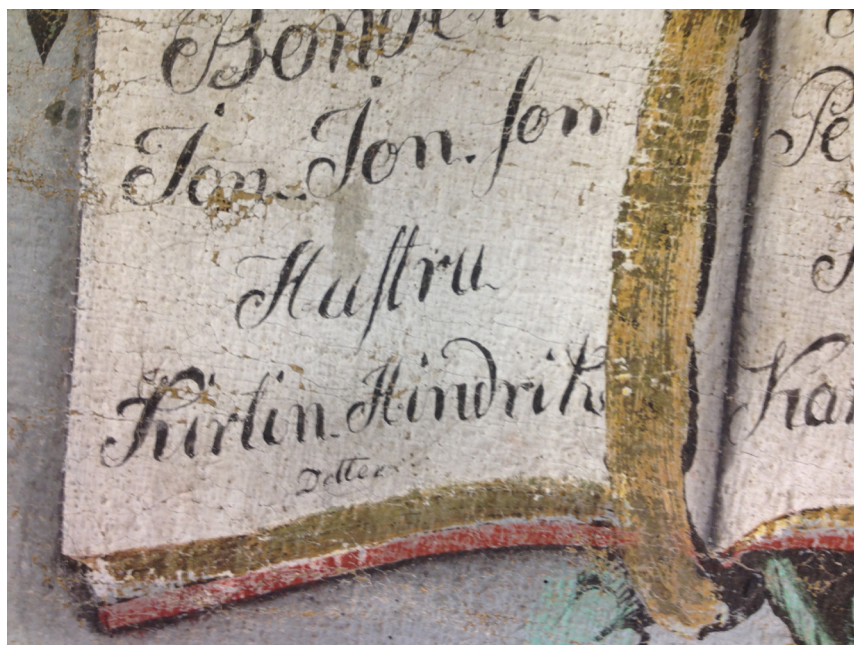 Bonden
Jon. Jon. ſon
Huſtru
Kirtin. Hindriks
Dotter